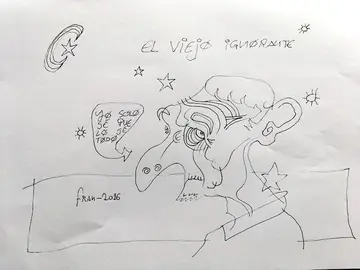 EL VIEJO IGNORANTE
YO SOLO
SÉ QUE
LO SÉ
TODO
fran-2016